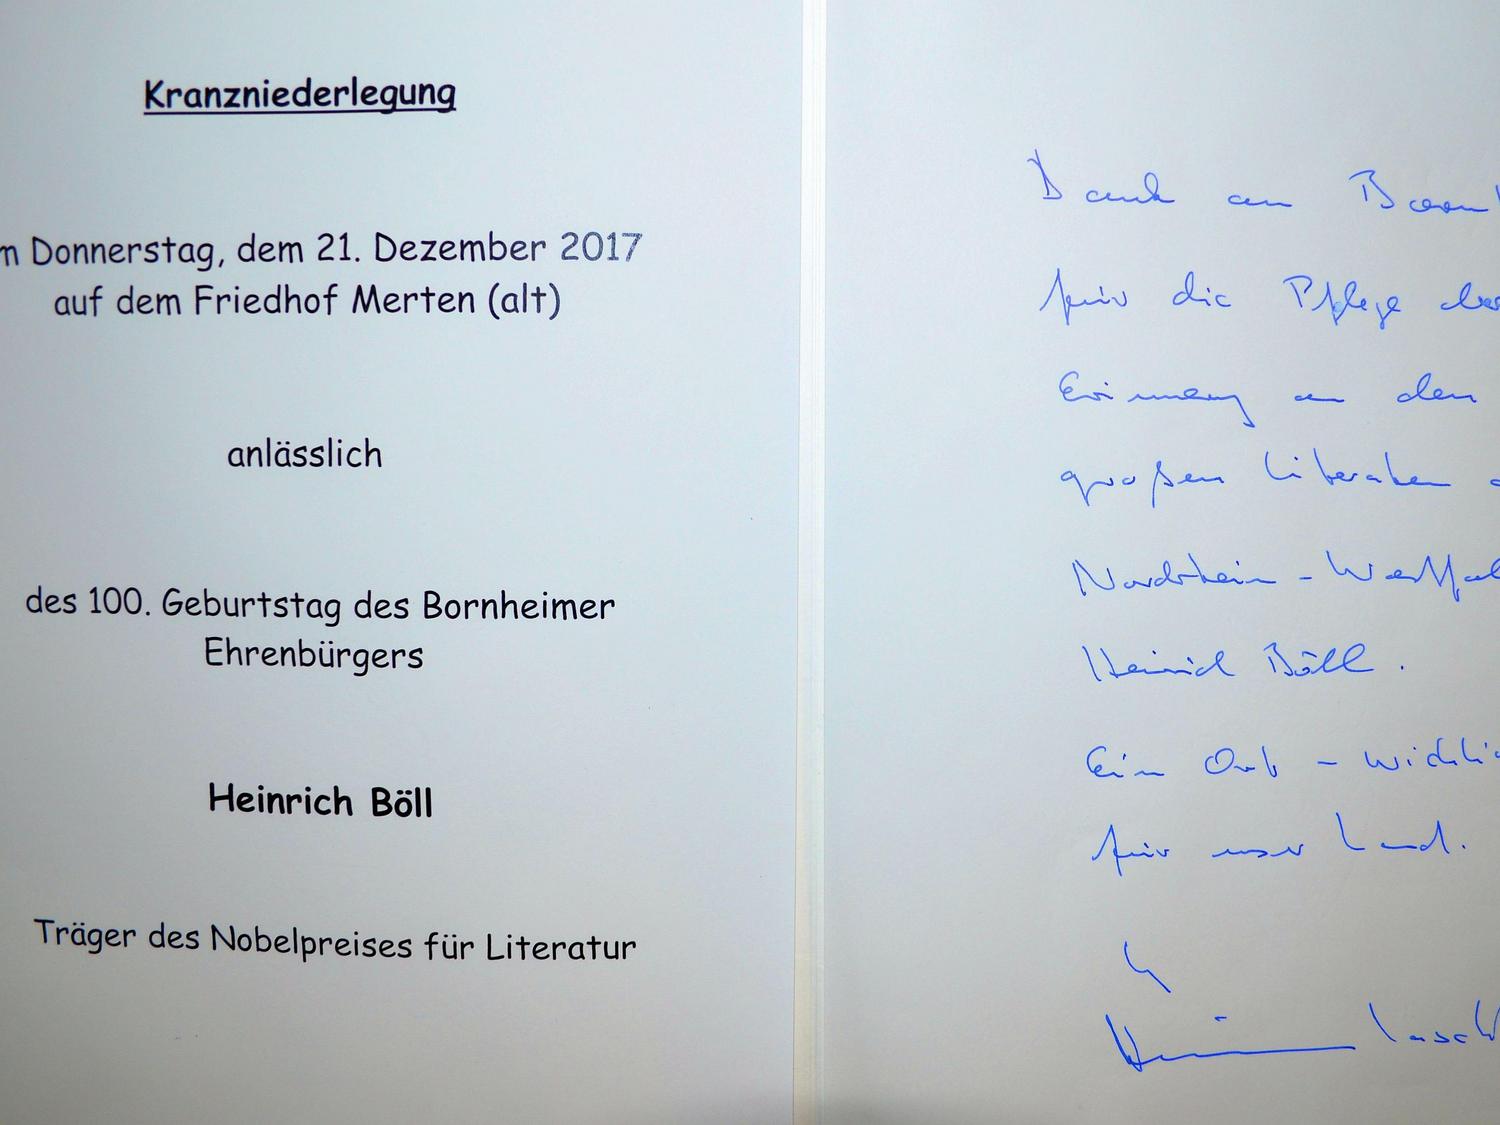 Kranzniederlegung
m Donnerstag, dem 21. Dezember 2017
auf dem Friedhof Merten (alt)
anlässlich
des 100. Geburtstag des Bornheimer
Ehrenbürgers
Heinrich Böll
Träger des Nobelpreises für Literatur
Dank an Born
für die Pflege der
Erinnerung an den
großen Literaten
Nordrhein-Westfal
Heinrich Böll.
Ein Ort - wichti
für unser Land.
Armin Lasch